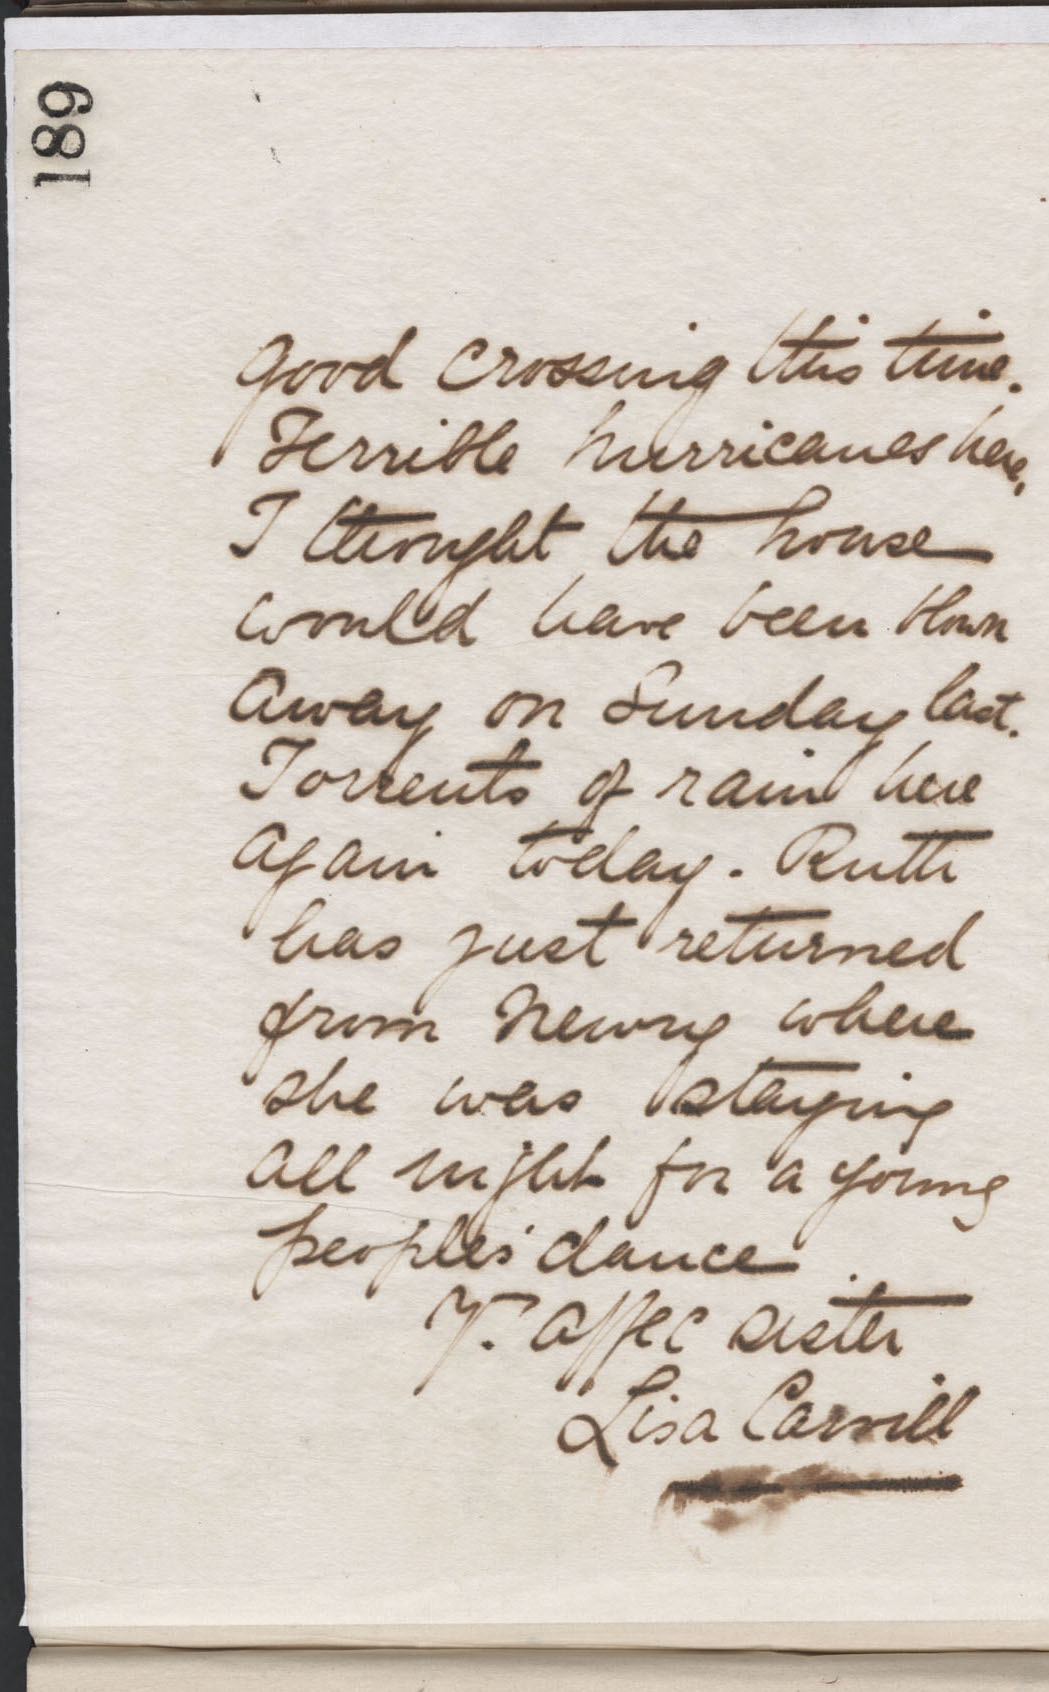 189
good crossing this time.
Terrible hurricanes here,
I thought the house
would have been blown
away on Sunday last.
Torrents of rain here
again today. Ruth
has just returned
from Newry where
she was staying
all night for a young
peoples' dance
Yr. affec sister
Lisa Carvill